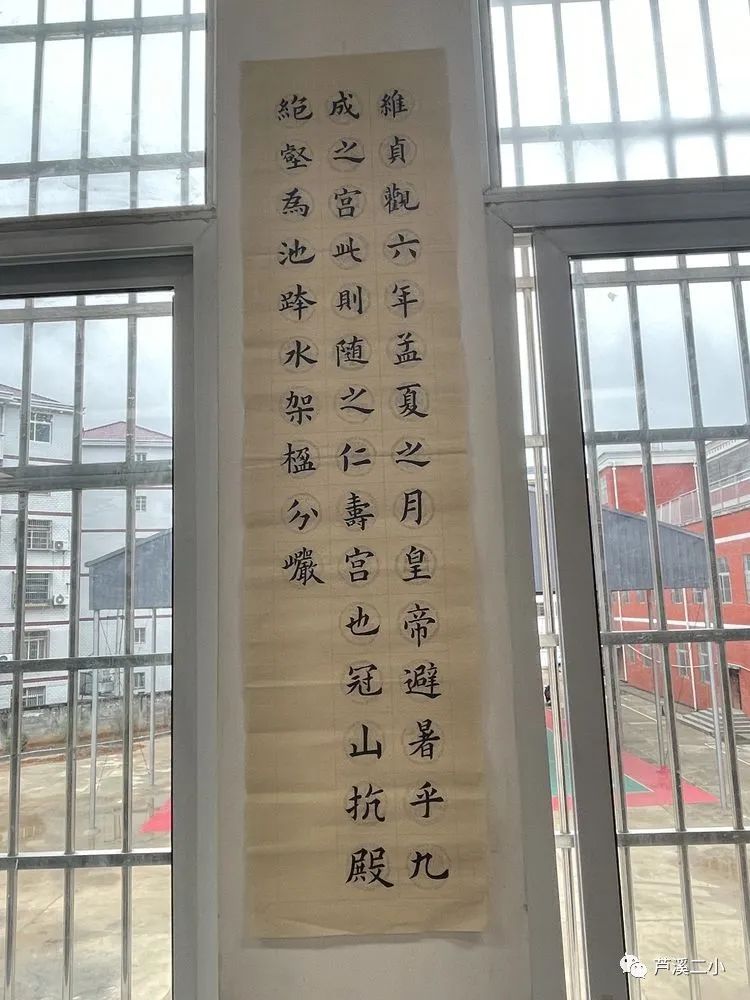 維貞觀六年孟夏之月皇帝避暑乎九
成之宫此則随之仁壽宫也冠山抗殿
絶壑為池跨水架楹分巗
芦溪二小